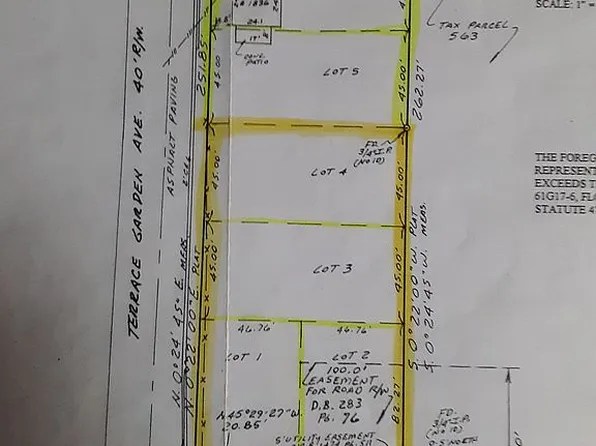 SCALE: 1" =
TAX PARCEL
563
24.1
17'
CONC.
PATIO
251.85'
45.00
LOT 5
45.00'
262.27'
TERRACE GARDEN AVE. 40' R/W.
ASPHALT PAVING
FD.
3/4" I.P.
(NO ID)
LOT 4
45.00'
45.00'
THE FOREG
REPRESENT
EXCEEDS T
61G17-6, FL
STATUTE 4
45.00'
LOT 3
45.00'
N. 0°24'45" E. MEAS.
N. 0°22'00" E. PLAT
S. 0°22'00" W. PLAT
S. 0°24'45" W. MEAS.
46.76'
46.76'
LOT 1
LOT 2
100.0'
EASEMENT
FOR ROAD R/W
D.B. 283
PG. 76
N 45°29'27" W.
20.85'
82.27'
FD.
5' UTILITY EASEMENT